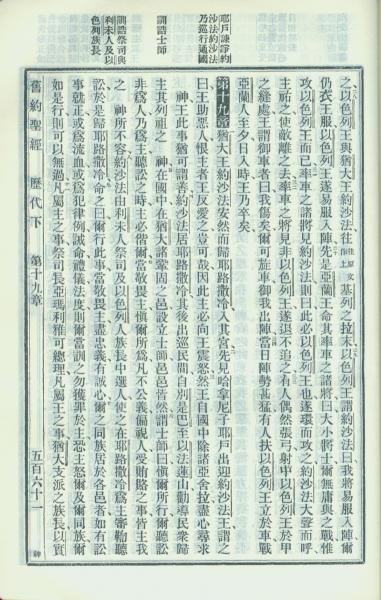 耶戶諫諍約
沙法約沙法
乃巡行通國
訓誥士師
訓誥祭司與
利未人及以
色列族長
之以色列王與猶大王約沙法往 往原文作上 基列之拉末以色列王謂約沙法曰我將易服入陣爾
仍衣王服以色列王遂易服入陣先是亞蘭王命其率車之諸將曰大小將士爾無庸與之戰惟
攻以色列王而已率車之諸將見約沙法則曰此必以色列王也遂環而攻之約沙法大聲而呼
主祐之使敵離之去率車之將見非以色列王遂退不追之有人偶然張弓射中以色列王於甲
之縫處王謂御車者曰我傷矣爾可旋車御我出陣當日陣勢甚猛有人扶以色列王立於車戰
亞蘭人至夕日入時王乃卒矣
第十九章 猶大王約沙法安然而歸耶路撒冷入其宮先見哈拿尼子耶戶出迎約沙法王謂之
曰王助惡人恨主者王反愛之豈可哉因此主必向王震怒然王自國中除諸亞舍拉盡心尋求
神王此事猶可謂善約沙法居耶路撒冷其後出巡民間自別是巴至以法蓮山勸導民衆歸
主其列祖之 神在國中在猶大諸鞏固之邑設立士師邑邑皆然謂士師曰愼爾所行爾聽訟
非爲人乃爲主聽訟之時主必偕爾當敬畏主愼爾所爲凡不公義偏視人受賄賂之事皆主我
之 神所不容約沙法由利未人祭司及以色列人族長中選人使之在耶路撒冷爲主審鞫聽
訟於是歸耶路撒冷命之曰爾行此事當敬畏主盡忠義有誠心爾之同族居於各邑者如有訟
事就正或爲流血或爲犯律例誡命禮儀法度則爾當訓之勿獲罪於主恐主怒爾及爾同族爾
如是行則可以無過凡屬主之事祭司長亞瑪利雅可總理凡屬王之事猶大支派之族長以實
舊約聖經 歷代下 第十九章 五百六十一 神